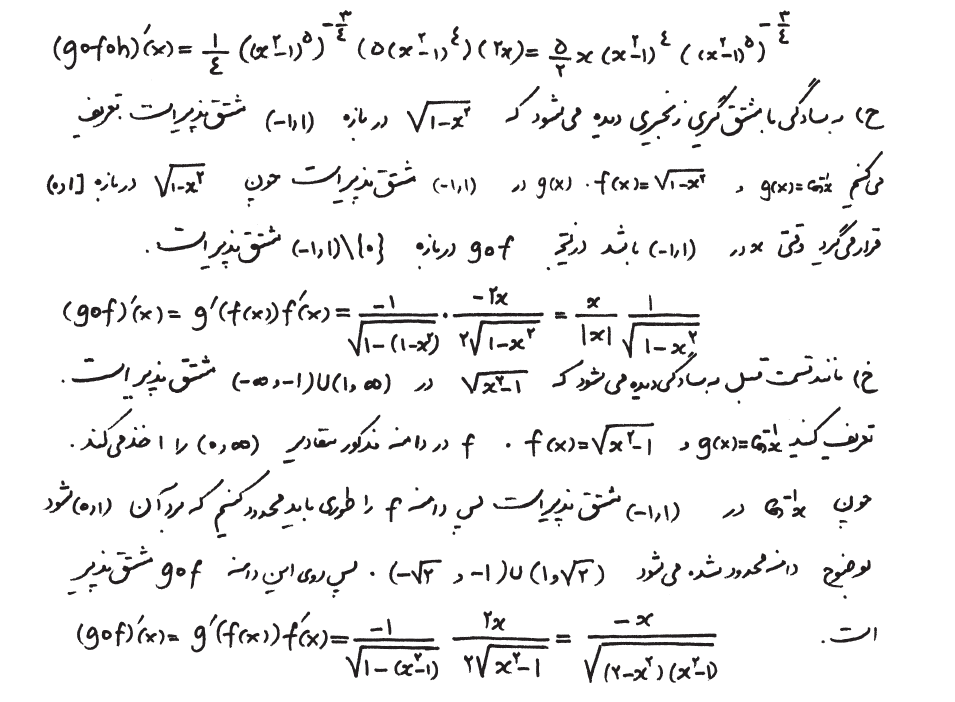 (gofoh)′(x) = ۱/۴ ((x²-۱)⁵)^(-۳/۴) (۵(x²-۱)⁴)(۲x) = ۵/۲ x (x²-۱)⁴ ((x²-۱)⁵)^(-۳/۴)
ح) به سادگی با مشتق‌گیری زنجیری دیده می‌شود که √(۱-x²) در بازه (-۱,۱) مشتق‌پذیر است تعریف
می‌کنیم g(x)=Cos⁻¹x و f(x)=√(۱-x²) . g(x) در (-۱,۱) مشتق‌پذیر است چون √(۱-x²) در بازه (۰,۱]
قرار می‌گیرد وقتی x در (-۱,۱) باشد در نتیجه gof در بازه (-۱,۱)\{۰} مشتق پذیر است .
(gof)′(x) = g′(f(x))f′(x) = -۱/√(۱-(۱-x²)) · -۲x/(۲√(۱-x²)) = x/|x| ۱/√(۱-x²)
خ) مانند قسمت قبل به سادگی دیده می‌شود که √(x²-۱) در (-∞,-۱)∪(۱,∞) مشتق پذیر است .
تعریف کنید g(x)=Cos⁻¹x و f(x)=√(x²-۱) . f در دامنه مذکور مقادیر (۰,∞) را اخذ می‌کند .
چون Cos⁻¹x در (-۱,۱) مشتق پذیر است پس دامنه f را طوری باید محدود کنیم که برد آن (۰,۱) شود
بوضوح دامنه محدود شده می‌شود (-√۲ , -۱)∪(۱,√۲) . پس روی این دامنه gof مشتق پذیر
است .
(gof)′(x) = g′(f(x))f′(x) = -۱/√(۱-(x²-۱)) ۲x/(۲√(x²-۱)) = -x/√((۲-x²)(x²-۱))